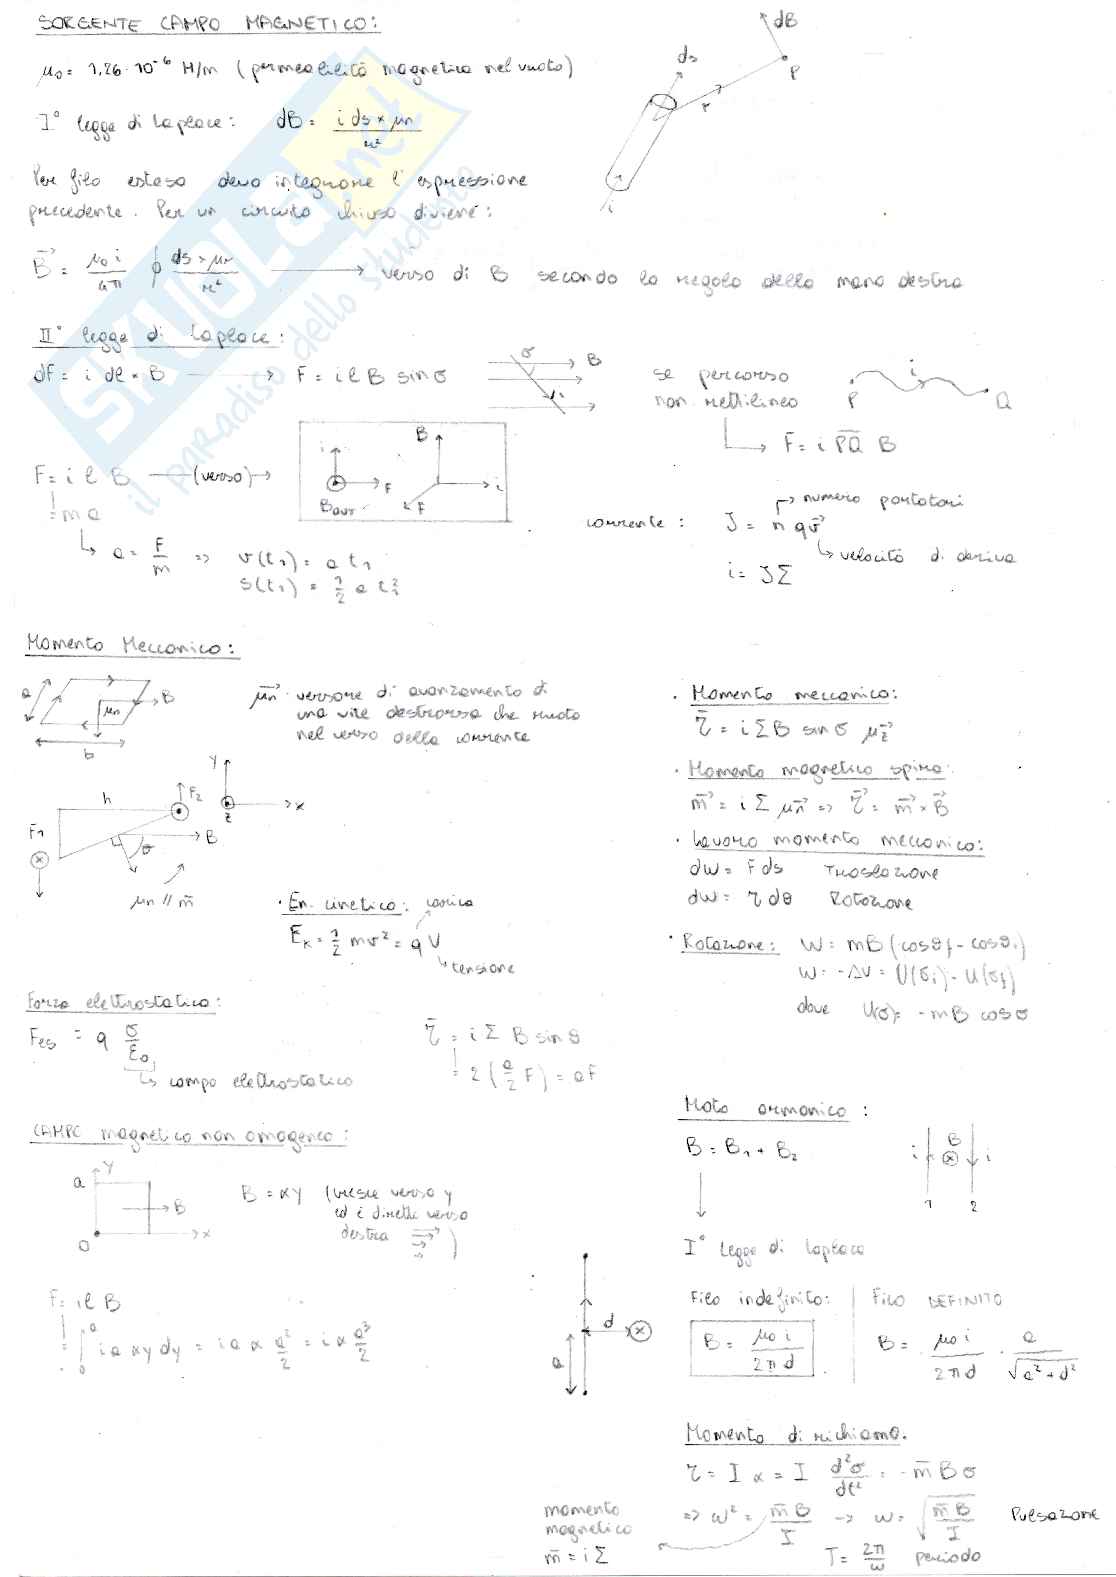 SORGENTE CAMPO MAGNETICO:
μ₀ = 1,26·10⁻⁶ H/m (permeabilità magnetica nel vuoto)
I° legge di Laplace: dB = i ds × μr / r²
Per filo esteso devo integrare l'espressione
precedente. Per un circuito chiuso diviene:
B⃗ = μ₀ i / 4π ∮ ds × μr / r² → verso di B secondo la regola della mano destra
dB
ds
P
r
i
II° legge di Laplace:
dF = i dl × B → F = i l B sin σ
σ
B
i
se percorso
non rettilineo
P
i
Q
→ F̄ = i P̄Q̄ B
F = i l B —(verso)→
= m a
i
F
Bout
B
i
F
→ a = F/m => v(t₁) = a t₁
s(t₁) = 1/2 a t₁²
corrente: J = n q v⃗
→ numero portatori
→ velocità di deriva
i = JΣ
Momento Meccanico:
a
B
μn
b
μn⃗ versore di avanzamento di
una vite destrorsa che ruota
nel verso della corrente
h
F₁
F₂
B
θ
μn // m̄
y
x
z
· Momento meccanico:
τ̄ = i Σ B sin σ μz⃗
· Momento magnetico spira:
m⃗ = i Σ μn⃗ => τ⃗ = m⃗ × B⃗
· Lavoro momento meccanico:
dW = F ds Traslazione
dW = τ dθ Rotazione
· Rotazione: W = mB (cosθf - cosθi)
W = -ΔU = U(σi) - U(σf)
dove U(σ) = -mB cos σ
· En. cinetica: carica
Ek = 1/2 mv² = q V
→ tensione
Forza elettrostatica:
Fes = q σ/ε₀
→ campo elettrostatico
τ̄ = i Σ B sin θ
= 2 (a/2 F) = aF
CAMPO magnetico non omogeneo:
a
y
B
O
x
B = αy (cresce verso y
ed è diretto verso
destra)
F = i l B
= ∫₀ᵃ i a αy dy = i a α a²/2 = i α a³/2
Moto armonico:
B = B₁ + B₂
i
B
i
1
2
I° Legge di Laplace
d
a
Filo indefinito:
B = μ₀ i / 2πd
Filo DEFINITO
B = μ₀ i / 2πd · a / √(a² + d²)
Momento di richiamo.
τ = I α = I d²σ/dt² = -m̄ B σ
=> ω² = m̄ B / I → ω = √(m̄ B / I) Pulsazione
T = 2π/ω periodo
momento
magnetico
m̄ = i Σ
SKUOLA.net
il paradiso dello studente